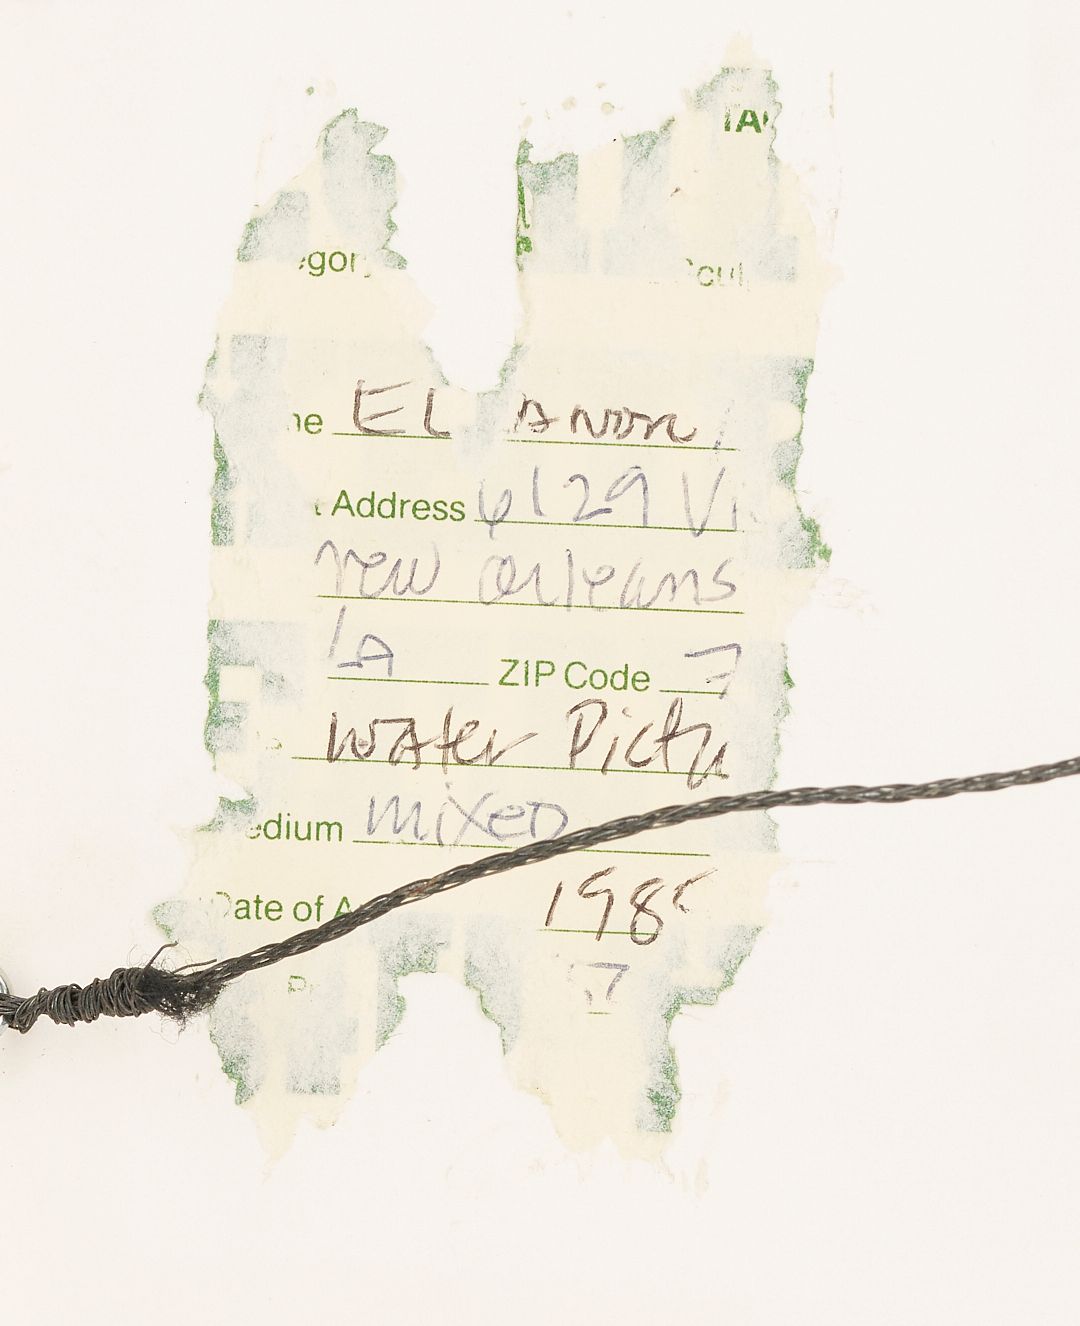 IA
egory
cul
ne EL ANOR
Address 6129 Vi
new orleans
La ZIP Code 7
water Pictu
edium mixed
Date of A 198
7